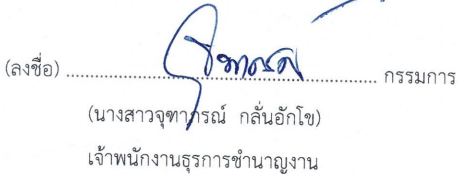 (ลงชื่อ) ........................................................ กรรมการ
(นางสาวจุฑาภรณ์ กลั่นอักโข)
เจ้าพนักงานธุรการชำนาญงาน